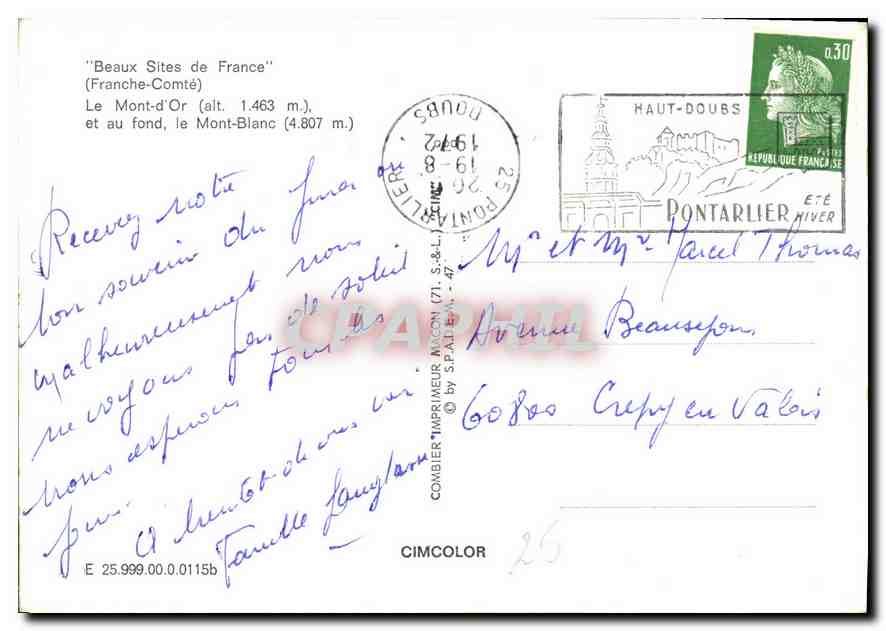 "Beaux Sites de France"
(Franche-Comté)
Le Mont-d'Or (alt. 1.463 m.),
et au fond, le Mont-Blanc (4.807 m.)
Recevez notre
bon souvenir du Jura
malheureusement nous
ne voyons pas de soleil
nous espérons tous les
jours
A bientôt de vous voir
Famille
E 25.999.00.0.0115b
CIMCOLOR
COMBIER IMPRIMEUR MACON (71. S.-&-L.)
© by S.P.A.D.E.M. - 47
25 PONTARLIER
DOUBS
19-8
1972
HAUT-DOUBS
PONTARLIER
ETÉ
HIVER
0,30
POSTES
REPUBLIQUE FRANÇAISE
Mr et Mme Marcel Thomas
Avenue
60800 Crepy en Valois
25
CPAPHIL